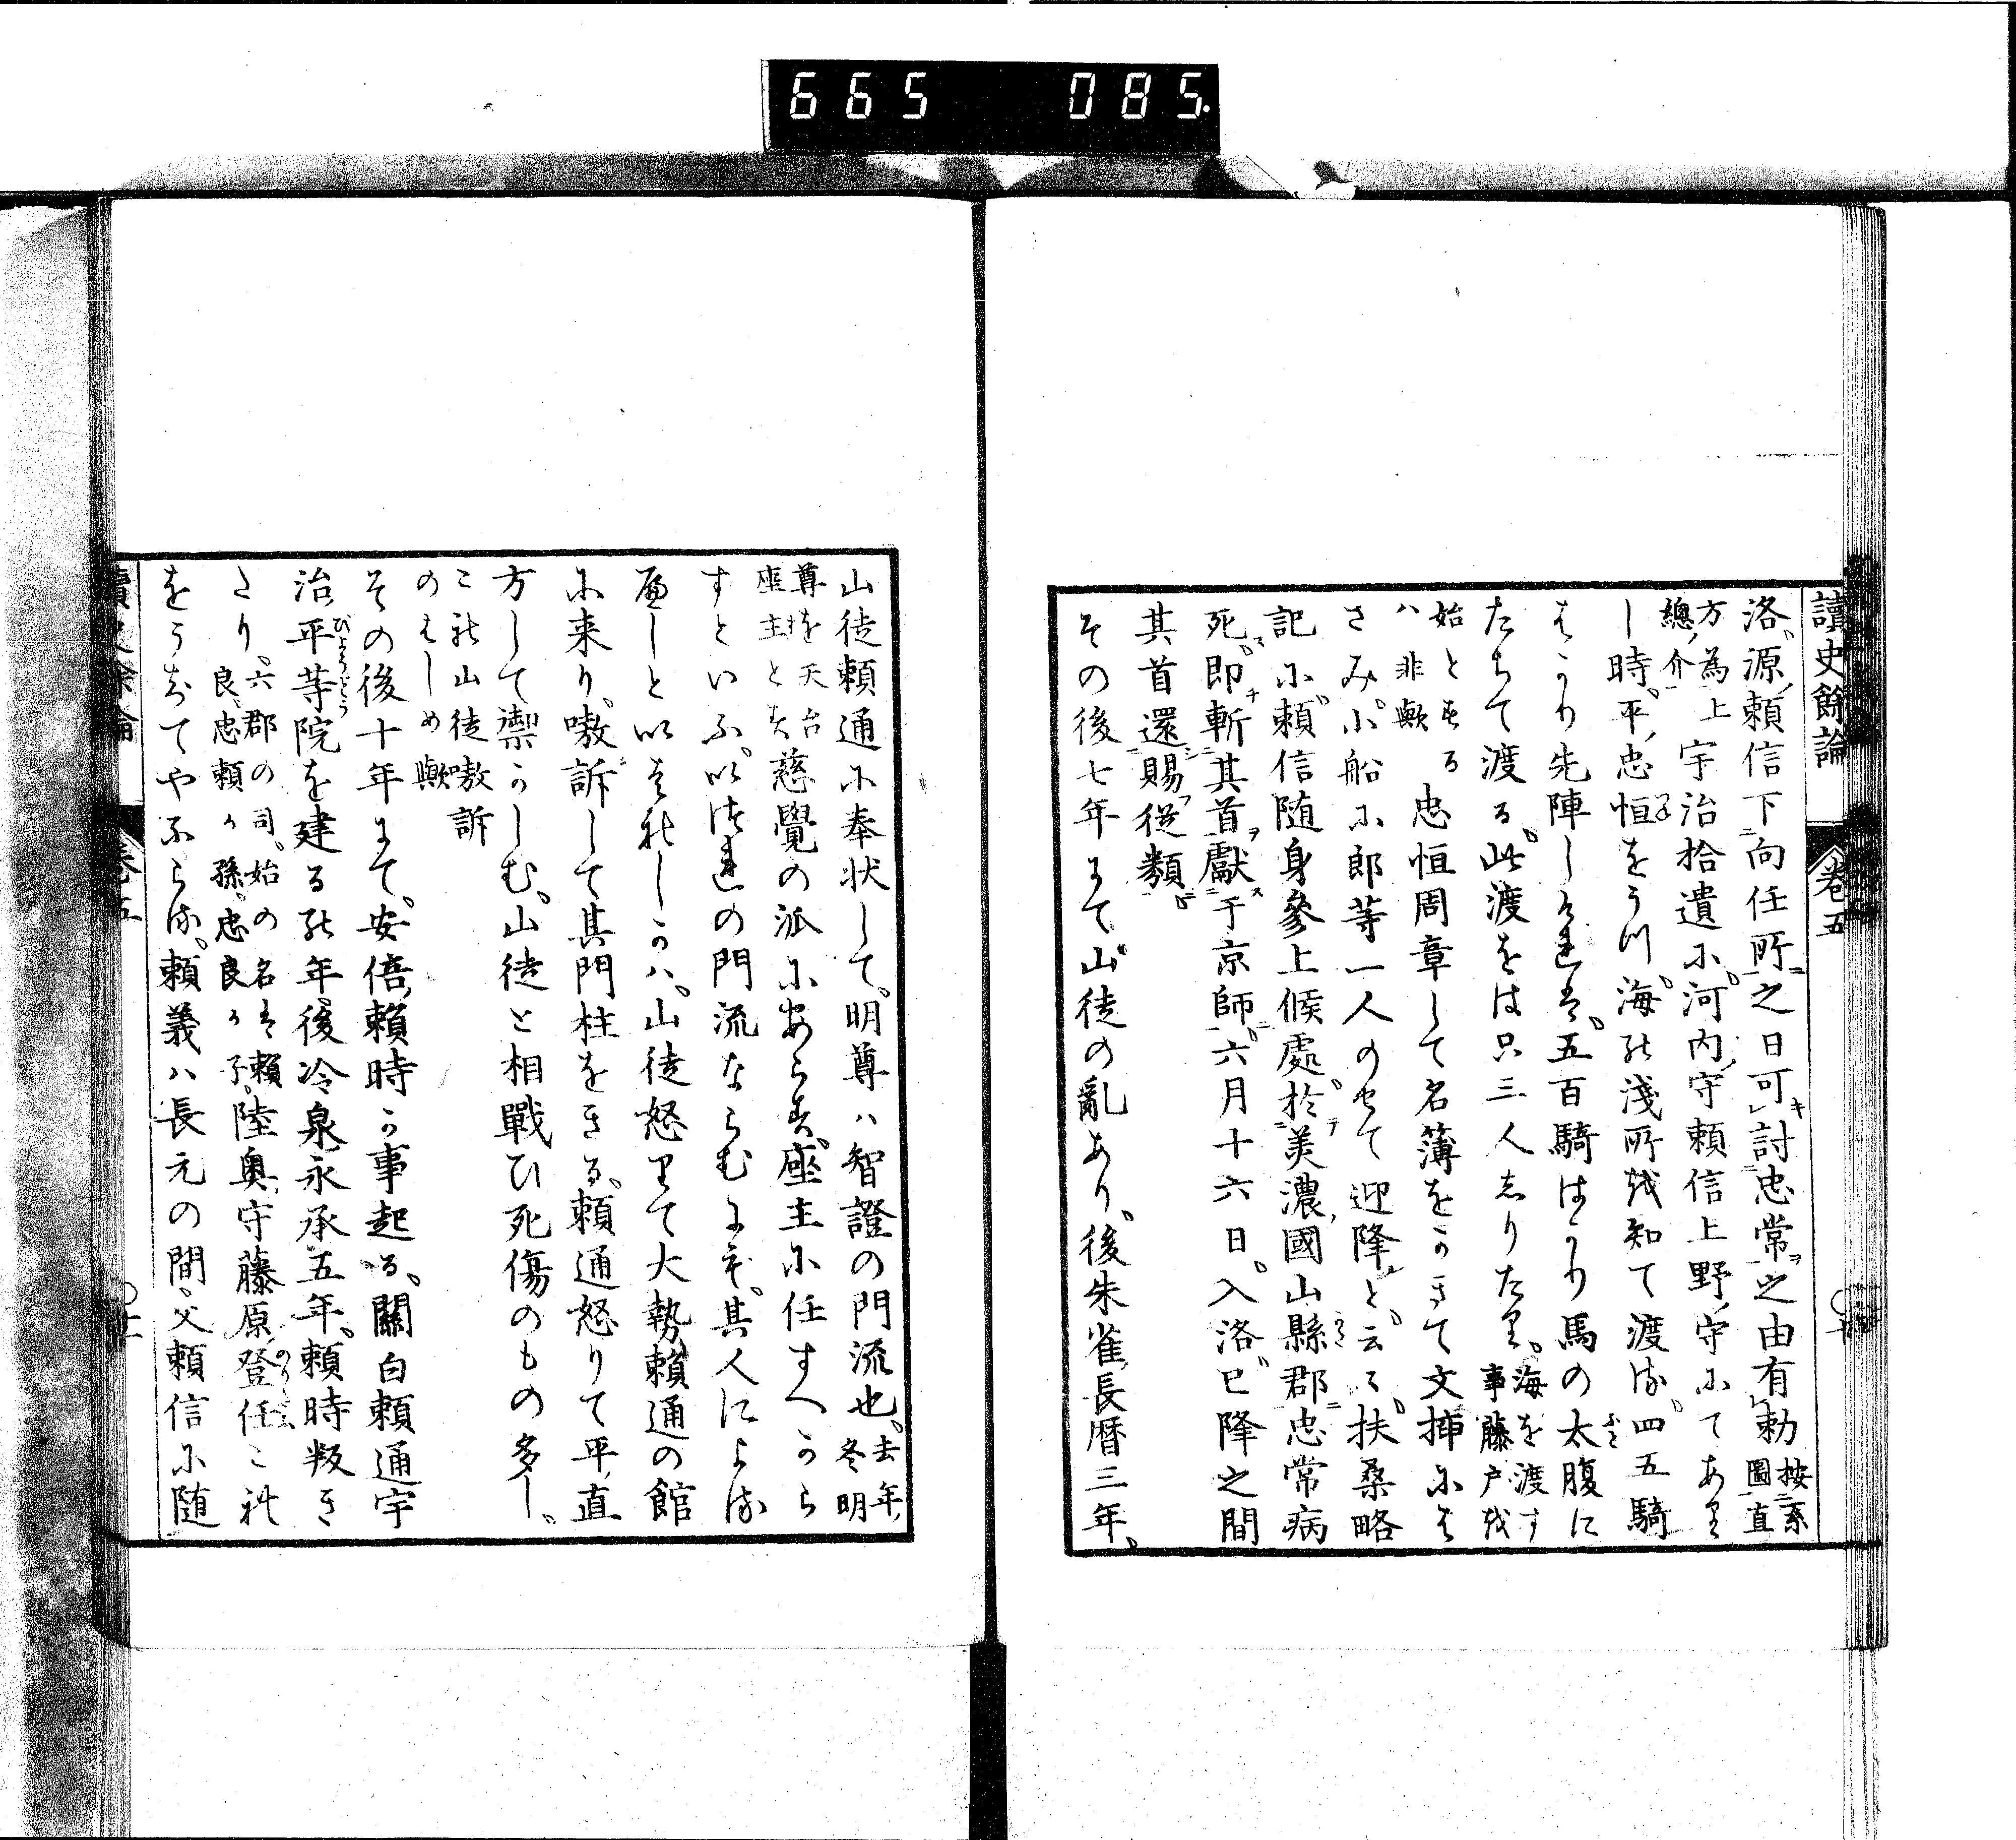 665 085.
讀史餘論 卷五
洛源頼信下向任所之日可討忠常之由有勅按系圖直
方為上總介宇治拾遺ニ河内守頼信上野守にてあり
し時平忠恒をうつ海の淺所を知て渡る四五騎
はかり先陣しければ五百騎はかり馬の太腹に
たちて渡る此渡をは只三人しりたり海を渡す事藤戸を
始とするハ非歟忠恒周章して名簿をかきて文挿には
さみ小船に郎等一人のせて迎降と云云扶桑略
記に頼信随身參上候處於美濃國山縣郡忠常病
死即斬其首獻于京師六月十六日入洛已降之間
其首還賜從類
その後七年にて山徒の亂あり後朱雀長暦三年
山徒頼通に奉状して明尊ハ智證の門流也去年冬明
尊を天台座主とす慈覺の派にあらす座主に任すへから
すといふいつれの門流ならむにも其人によ
るへしといはれしかハ山徒怒りて大勢頼通の館
に来り嗷訴して其門柱をきる頼通怒りて平直
方して禦かしむ山徒と相戰ひ死傷のもの多し
これ山徒嗷訴のはしめ歟
その後十年にて安倍頼時か事起る關白頼通宇
治平等院を建るの年後冷泉永承五年頼時叛き
たり六郡の司始の名は頼良忠頼か孫忠良か子陸奥守藤原登任これ
をうちてやふらる頼義ハ長元の間父頼信に随